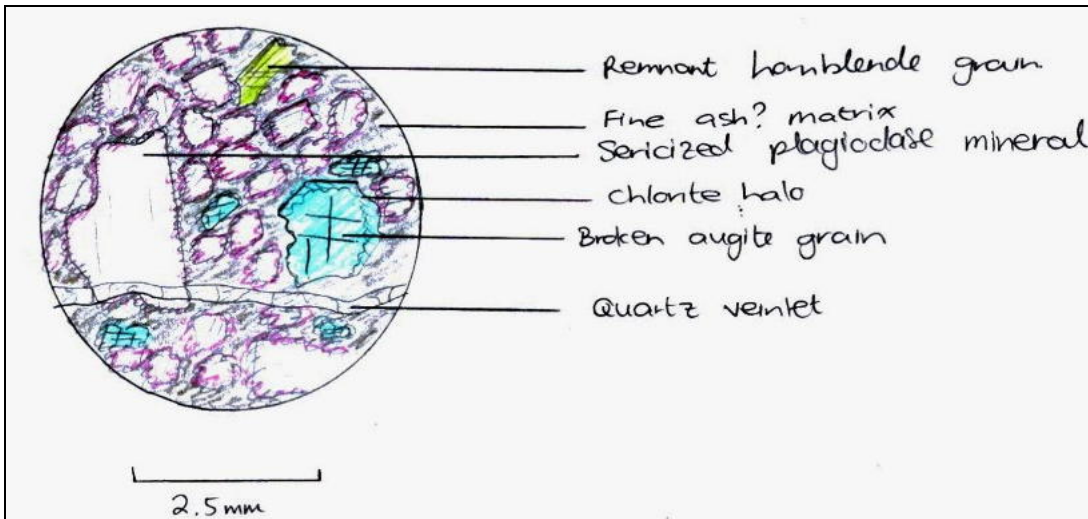 Remnant hornblende grain
Fine ash? matrix
Sericized plagioclase mineral
Chlorite halo
Broken augite grain
Quartz veinlet
2.5mm